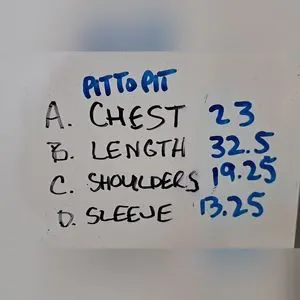 PIT TO PIT
A. CHEST 23
B. LENGTH 32.5
C. SHOULDERS 19.25
D. SLEEVE 13.25